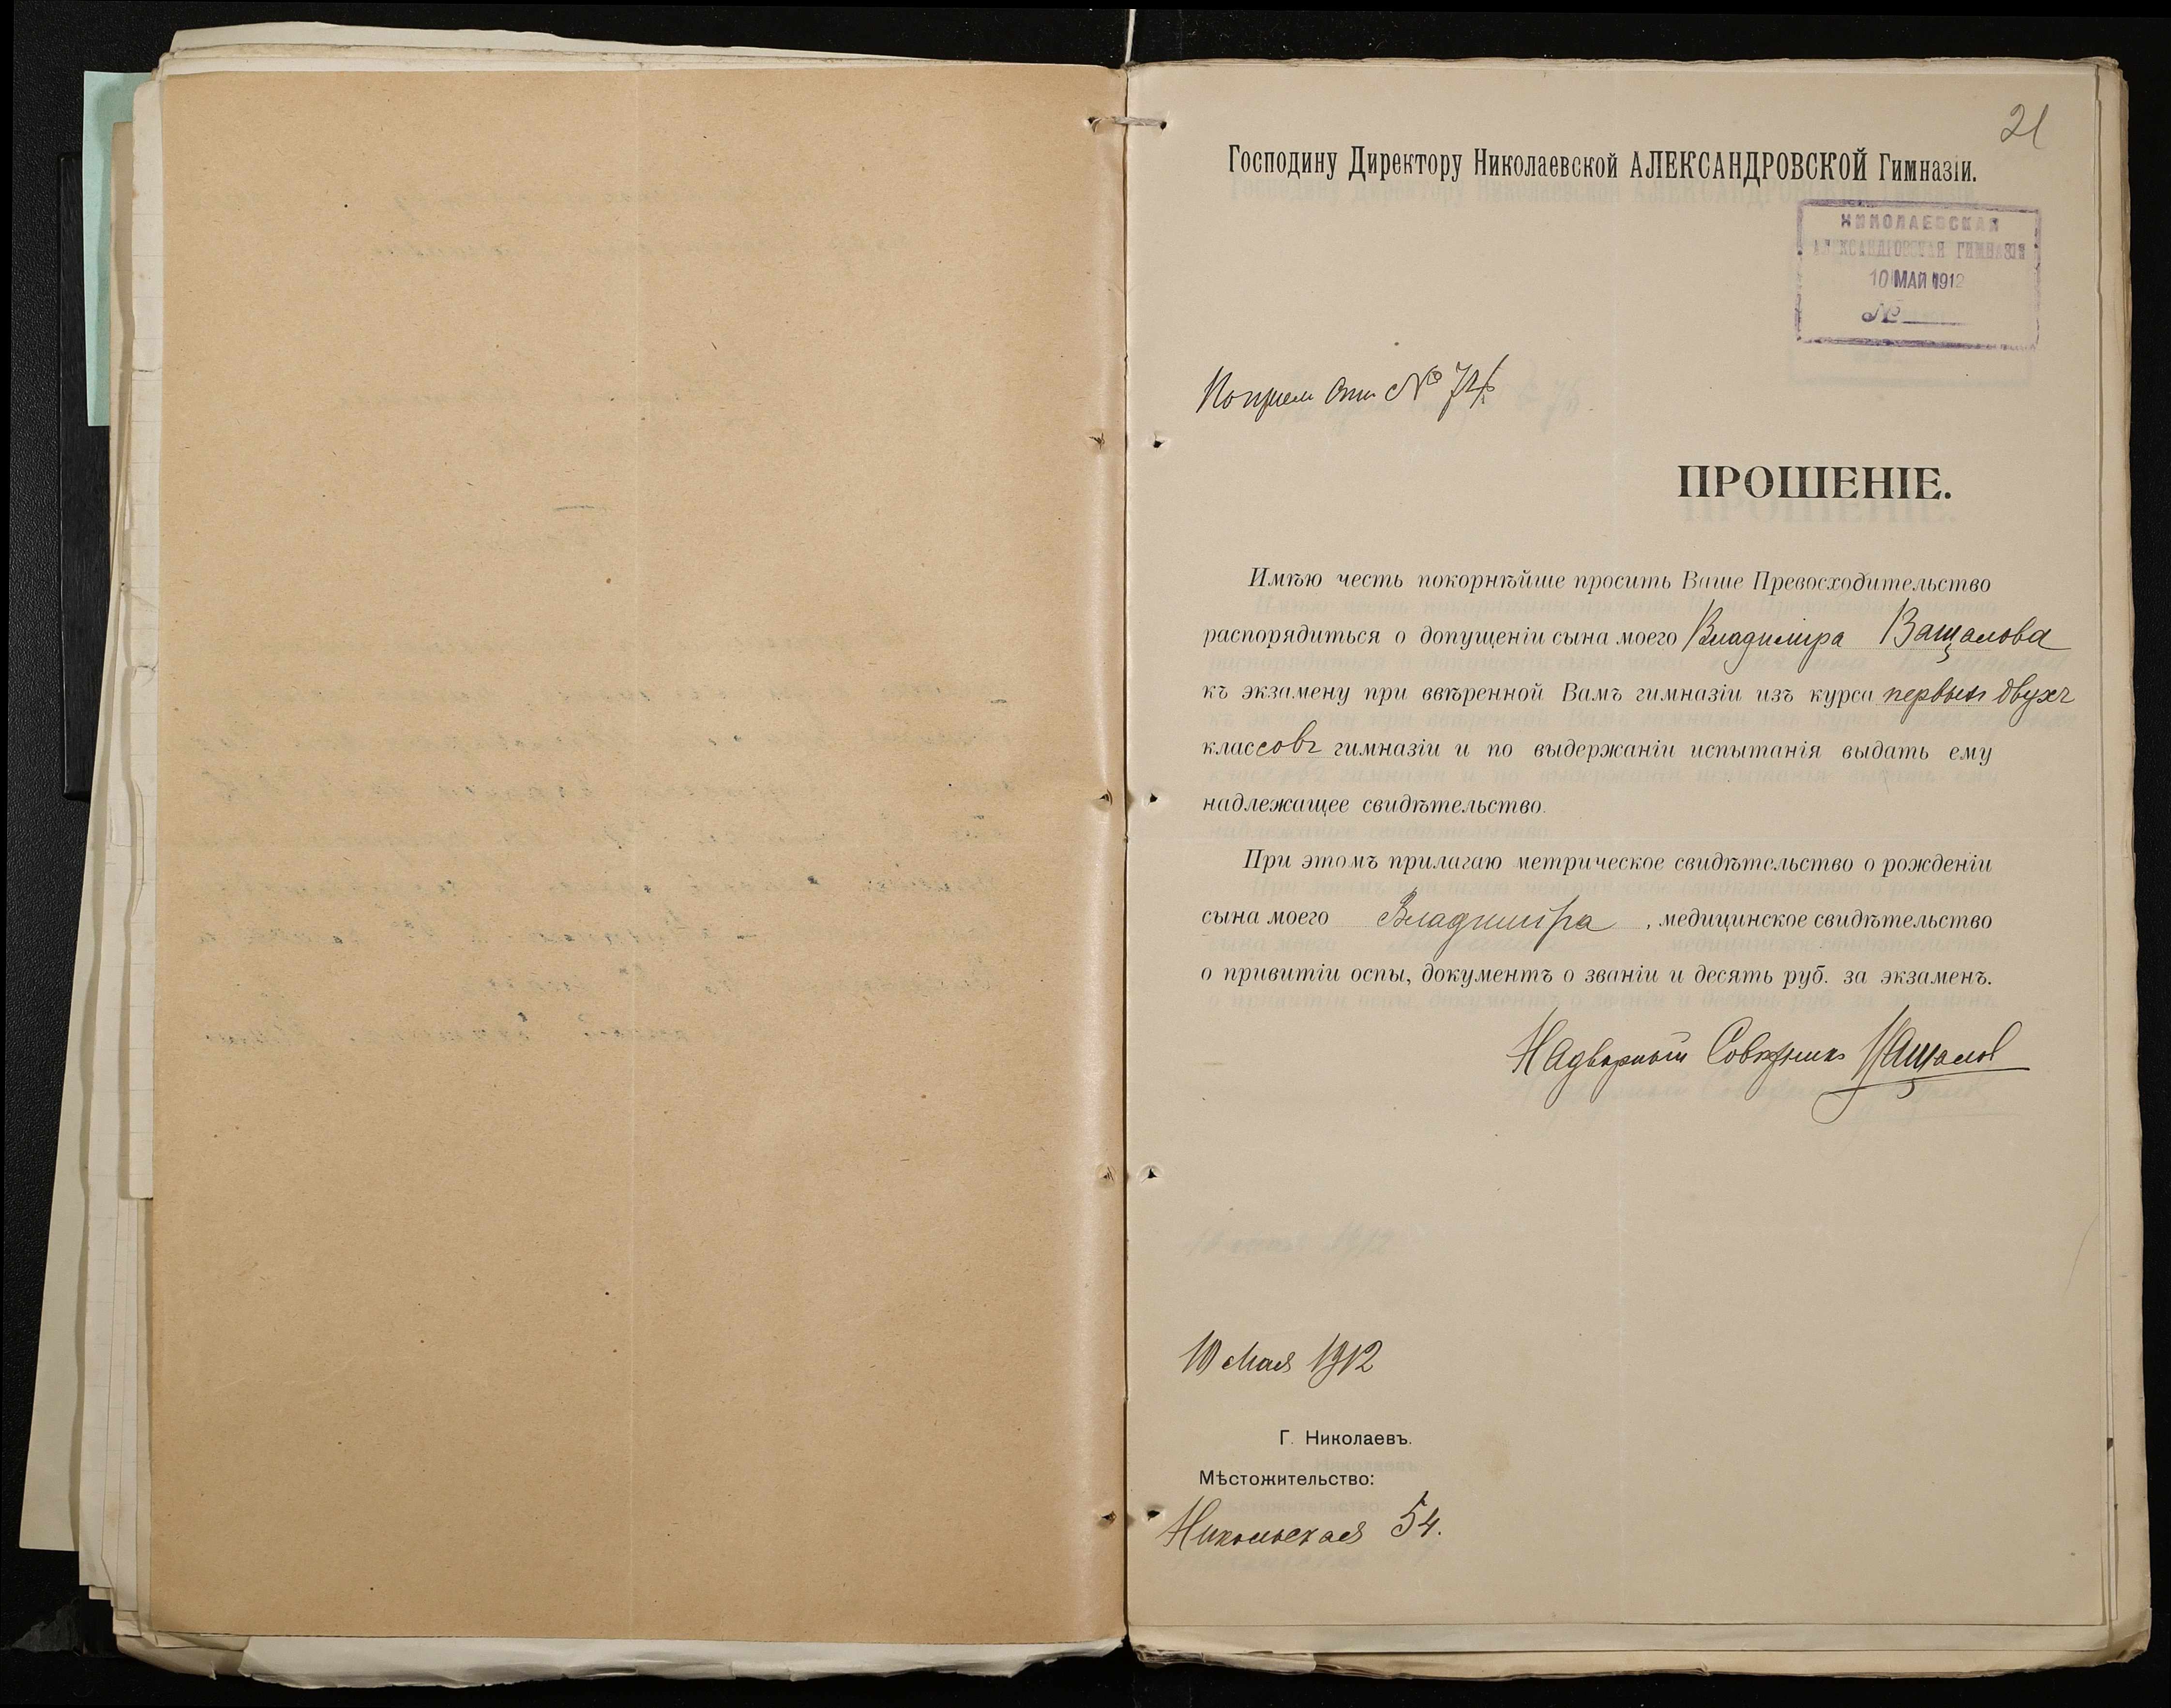 21
Господину Директору Николаевской АЛЕКСАНДРОВСКОЙ Гимназіи.
НИКОЛАЕВСКАЯ
АЛЕКСАНДРОВСКАЯ ГИМНАЗІЯ
10 МАЯ 1912
№
№
ПРОШЕНІЕ.
Имѣю честь покорнѣйше просить Ваше Превосходительство
распорядиться о допущеніи сына моего Владиміра Ващалова
къ экзамену при ввѣренной Вамъ гимназіи изъ курса первыхъ двухъ
классовъ гимназіи и по выдержаніи испытанія выдать ему
надлежащее свидѣтельство.
При этомъ прилагаю метрическое свидѣтельство о рожденіи
сына моего Владиміра, медицинское свидѣтельство
о привитіи оспы, документъ о званіи и десять руб. за экзаменъ.
Надворный Совѣтникъ Ващалов
10 Мая 1912
Г. Николаевъ.
Мѣстожительство:
Никольская 54.